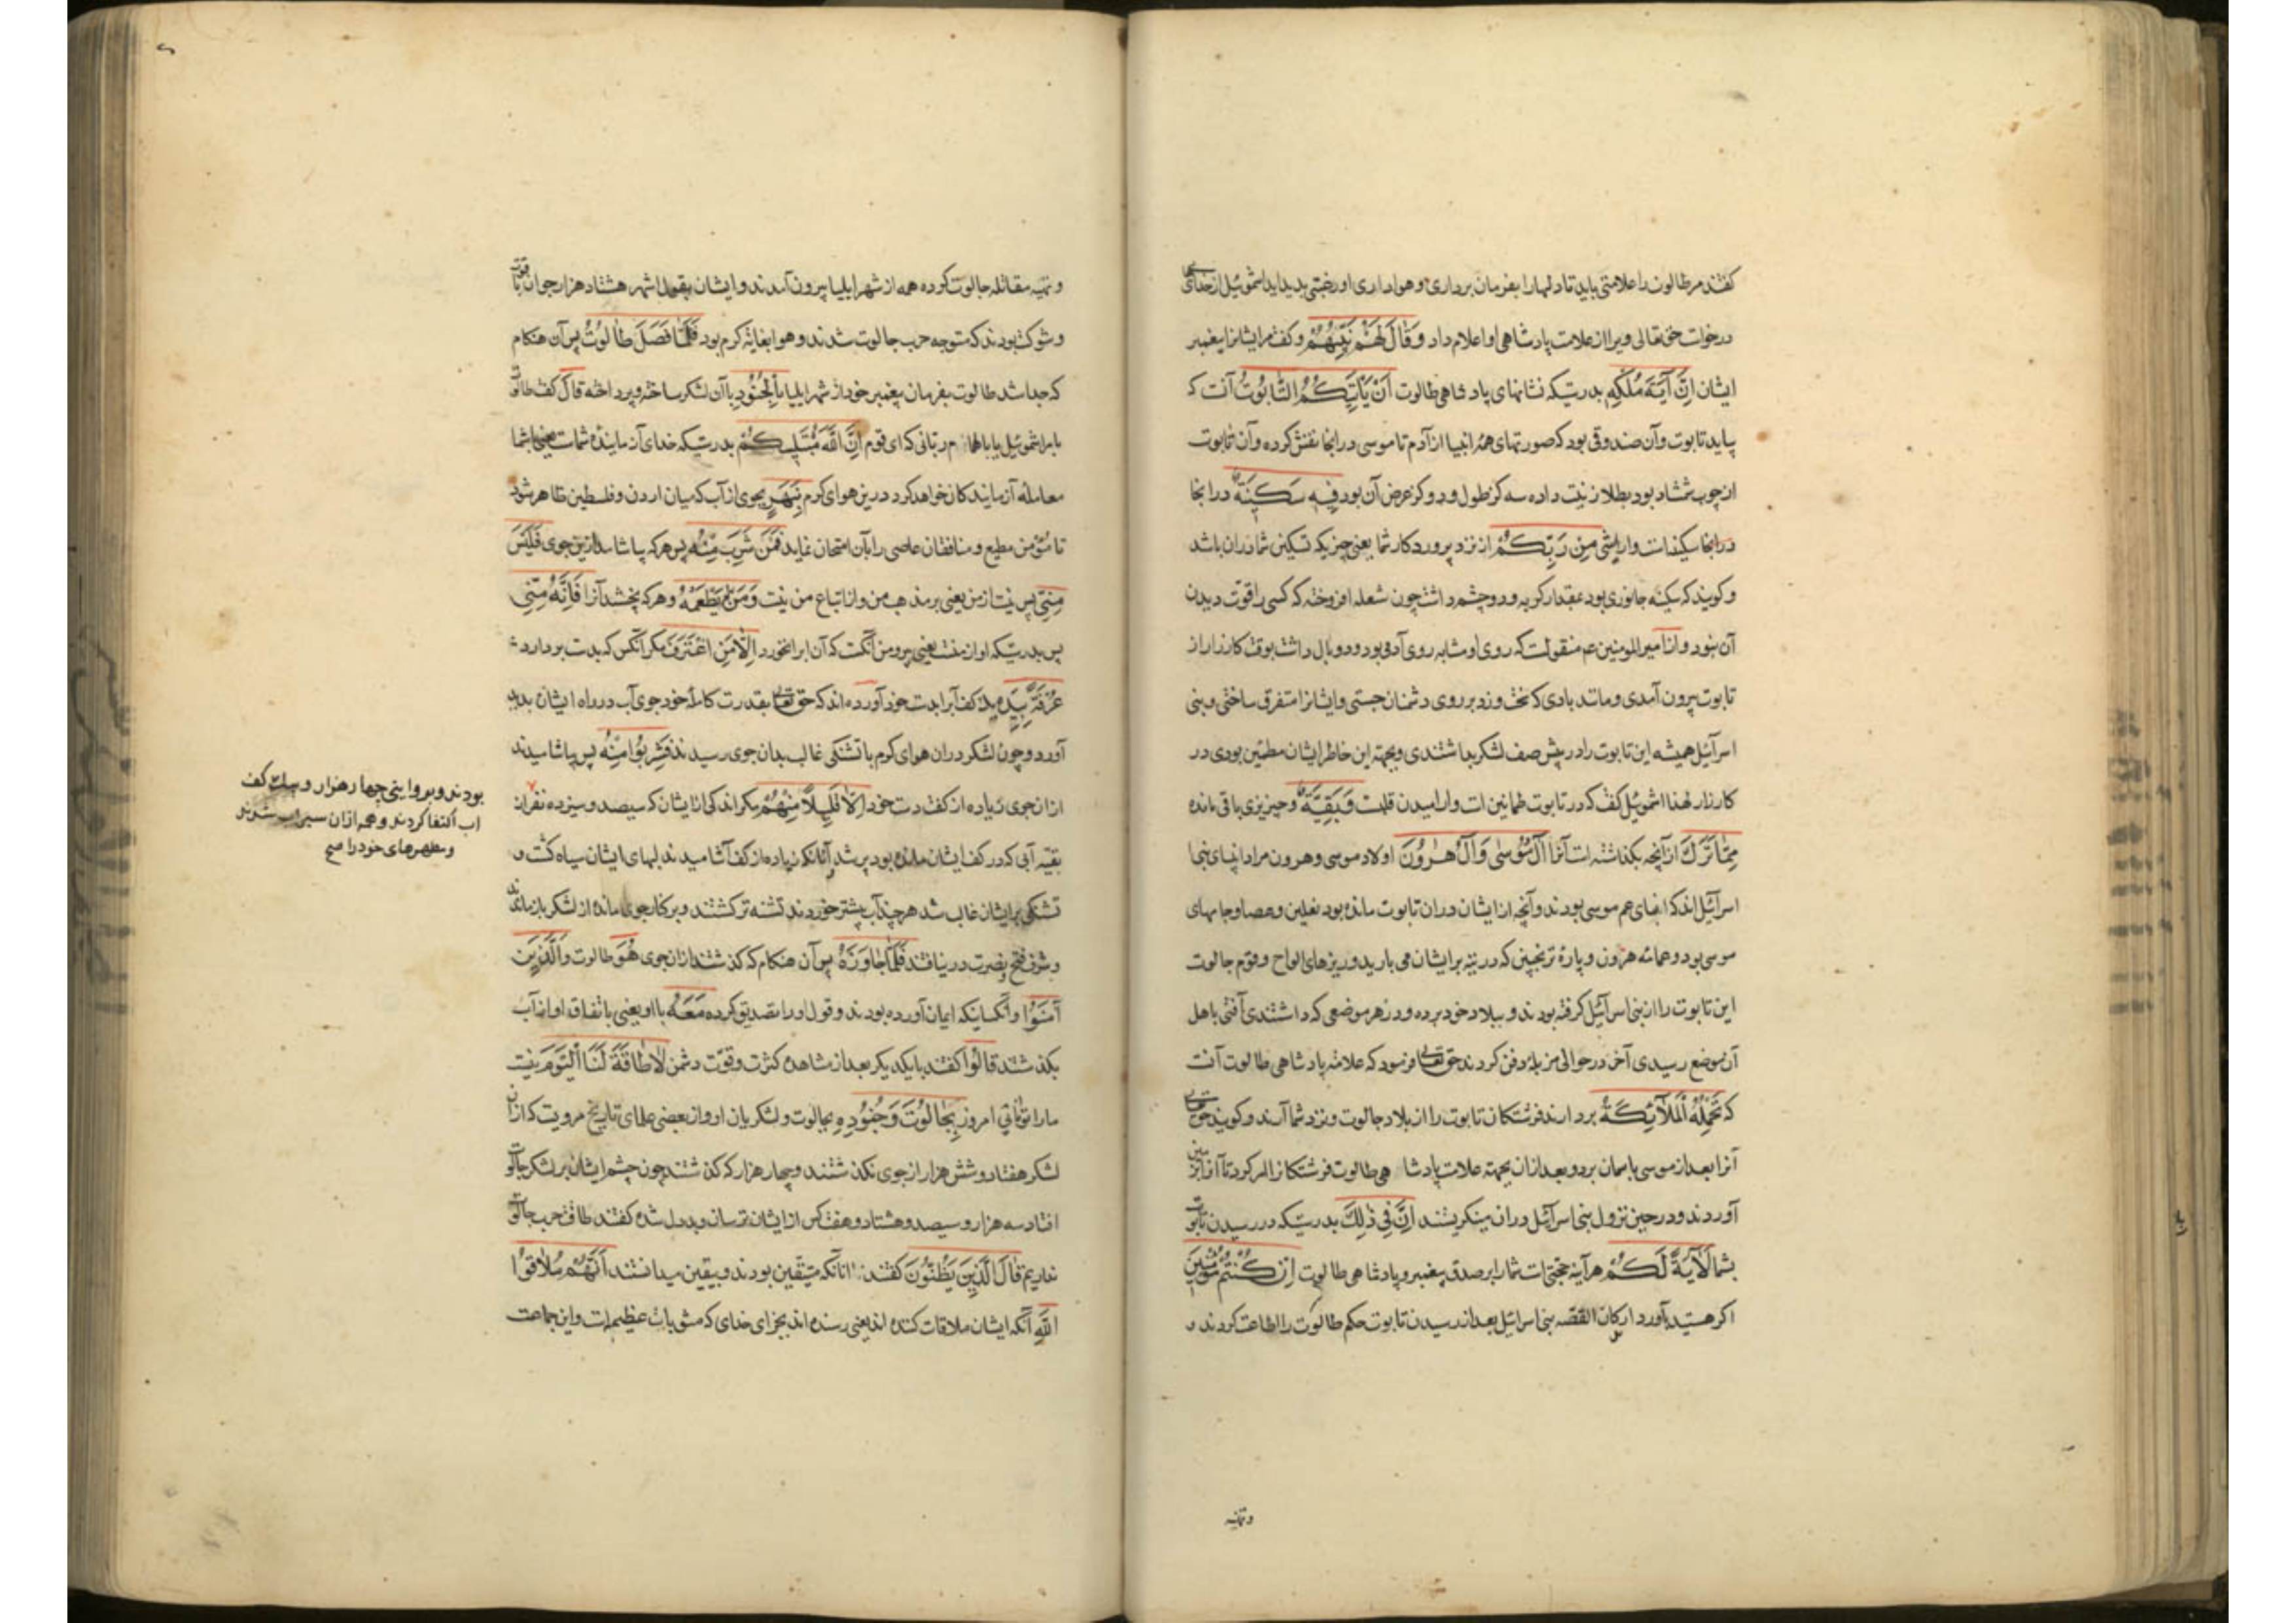 کفتند مر طالوت را علامتی باید تا دلهارا بفرمان برداری وهواداری او رغبتی پدید اید اشموئیل از خدای
درخواست حق تعالی ویرا از علامت پادشاهی او اعلام داد وَقَالَ لَهُمْ نَبِيُّهُمْ وکفت مرایشانرا پیغمبر
ایشان اِنَّ آيَةَ مُلْكِهِ بدرستیکه نشانهای پادشاهی طالوت اَنْ يَأْتِيَكُمُ التَّابُوتُ آنست که
بیاید تابوت وآن صندوقی بود که صورتهای همۀ انبیا از آدم تا موسی درانجا نقش کرده وآن تابوت
از چوب شمشاد بود بطلا زینت داده سه کز طول ودو کز عرض آن بود فِيهِ سَكِينَةٌ درانجا
درانجا سکینه است وارامشی مِنْ رَبِّكُمْ از نزد پروردکار شما یعنی چیزیکه تسکین شما دران باشد
وکویند که سکینه جانوری بود بمقدار کربه ودو چشم داشت چون شعله افروخته که کسی را قوت دیدن
آن نبود واز امیرالمومنین عم منقولست که روی او مشابه روی آدمی بود ودو بال داشت بوقت کارزار از
تابوت بیرون آمدی ومانند بادی که سخت وزد بر روی دشمنان جستی وایشانرا متفرق ساختی وبنی
اسرآئیل همیشه این تابوت را در پیش صف لشکر بداشتندی وبجهة این خاطر ایشان مطمئن بودی در
کارزار لهذا اشموئیل کفت که در تابوت طمانینت است وارامیدن قلبست وَبَقِيَّةٌ وچیزیزی باقی مانده
مِمَّا تَرَكَ از آنچه بکذاشته است آنرا آلُ مُوسٰى وَآلُ هٰرُونَ اولاد موسی وهرون مراد انبیای بنی
اسرآئیل اند که ابنای عم موسی بودند وآنچه از ایشان دران تابوت مانده بود نعلین وعصا وجامهای
موسی بود وعمامۀ هرون وپارۀ ترنجبین که در تیه بر ایشان می بارید وریزهای الواح وقوم جالوت
این تابوت را از بنی اسرآئیل کرفته بودند وببلاد خود برده ودر هر موضعی که داشتندی آفتی باهل
آن موضع رسیدی آخر در حوالی مزبله دفن کردند حق تعالی فرمود که علامة پادشاهی طالوت آنست
که تَحْمِلُهُ الْمَلَآئِكَةُ بردارند فرشتکان تابوت را از بلاد جالوت ونزد شما آرند وکویند حق تعالی
آنرا بعد از موسی باسمان برد وبعد ازان بجهة علامت پادشا هی طالوت فرشتکانرا امر کرد تا آنرا بزمین
آوردند ودر حین نزول بنی اسرآئیل دران مینکریستند اِنَّ فِي ذٰلِكَ بدرستیکه در رسیدن تابوت
بشما لَآيَةً لَكُمْ هرآینه حجتی است شمارا بر صدق پیغمبر وپادشاهی طالوت اِنْ كُنْتُمْ مُؤْمِنِينَ
اکر هستید باوردارکان القصه بنی اسرائیل بعد از رسیدن تابوت حکم طالوت را اطاعت کردند و
وتهیه
وتهیه مقاتله جالوت کرده همه از شهر ایلیا بیرون آمدند وایشان بقول اشهر هشتاد هزار جوان باقوت
وشوکت بودند که متوجه حرب جالوت شدند وهوا بغایة کرم بود فَلَمَّا فَصَلَ طَالُوتُ پس آن هنکام
که جدا شد طالوت بفرمان پیغمبر خود از شهر ایلیا بِالْجُنُودِ باآن لشکر ساخته وپرداخته قَالَ کفت طالوت
بامر اشموئیل یا بالهام ربانی که ای قوم اِنَّ اللَّهَ مُبْتَلِيكُمْ بدرستیکه خدای آزماینده شماست یعنی باشما
معامله آزمایندکان خواهد کرد درین هوای کرم بِنَهَرٍ بجوی از آب که میان اردن وفلسطین ظاهر شود
تا مؤمن مطیع ومنافقان عاصی را بآن امتحان نماید فَمَنْ شَرِبَ مِنْهُ پس هرکه بیاشامد ازین جوی فَلَيْسَ
مِنِّي پس نیست از من یعنی بر مذهب من واز اتباع من نیست وَمَنْ لَمْ يَطْعَمْهُ وهرکه نچشد آنرا فَاِنَّهُ مِنِّي
پس بدرستیکه او از منست یعنی پیرو من آنکست که آن ابرا نخورد اِلَّا مَنِ اغْتَرَفَ مکر آنکس که بدست بردارد
غُرْفَةً بِيَدِهِ یک کف آبرا بدست خود آورده اند که حق تعالی بقدرت کاملۀ خود جوی آب در راه ایشان پدید
آورد وچون لشکر دران هوای کرم با تشنکی غالب بدان جوی رسیدند فَشَرِبُوا مِنْهُ پس بیاشامیدند
ازان جوی زیاده از کف دست خود اِلَّا قَلِيلًا مِنْهُمْ مکر اندکی از ایشان که سیصد وسیزده نفر از
بقیۀ آبی که در کف ایشان مانده بود پر شد وآنانکه زیاده از کف آشامیدند لبهای ایشان سیاه کشت و
تشنکی بر ایشان غالب شد هرچند آب بیشتر خوردند تشنه تر کشتند وبر کنار جوی مانده از لشکر بازماندند
وشرف فتح ونصرت در نیافتند فَلَمَّا جَاوَزَهُ پس آن هنکام که کذشتند ازان جوی هُوَ طالوت وَالَّذِينَ
آمَنُوا وآنکسانیکه ایمان آورده بودند وقول اورا تصدیق کرده مَعَهُ بااو یعنی باتفاق او از آب
بکذشتند قَالُوا کفتند بایکدیکر بعد از مشاهده کثرت وقوّت دشمن لَا طَاقَةَ لَنَا الْيَوْمَ نیست
مارا توانائی امروز بِجَالُوتَ وَجُنُودِهِ بجالوت ولشکریان او واز بعضی علمای تاریخ مرویست که ازان
لشکر هفتاد وشش هزار از جوی نکذشتند وچهار هزار که کذشتند چون چشم ایشان بر لشکر جالوت
افتاد سه هزار وسیصد وهشتاد وهفت کس از ایشان ترسان وبددل شده کفتند طاقت حرب جالوت
نداریم قَالَ الَّذِينَ يَظُنُّونَ کفتند آنانکه متیقن بودند وبیقین میدانستند اَنَّهُمْ مُلَاقُوا
اللَّهِ آنکه ایشان ملاقات کننده اند یعنی رسنده اند بجزای خدای که مثوبات عظیم است واین جماعت
بودند وبروایتی چهار هزار وبیک کف
اب اکتفا کردند وهمه ازان سیراب شدند
ومطهرهای خود را صح